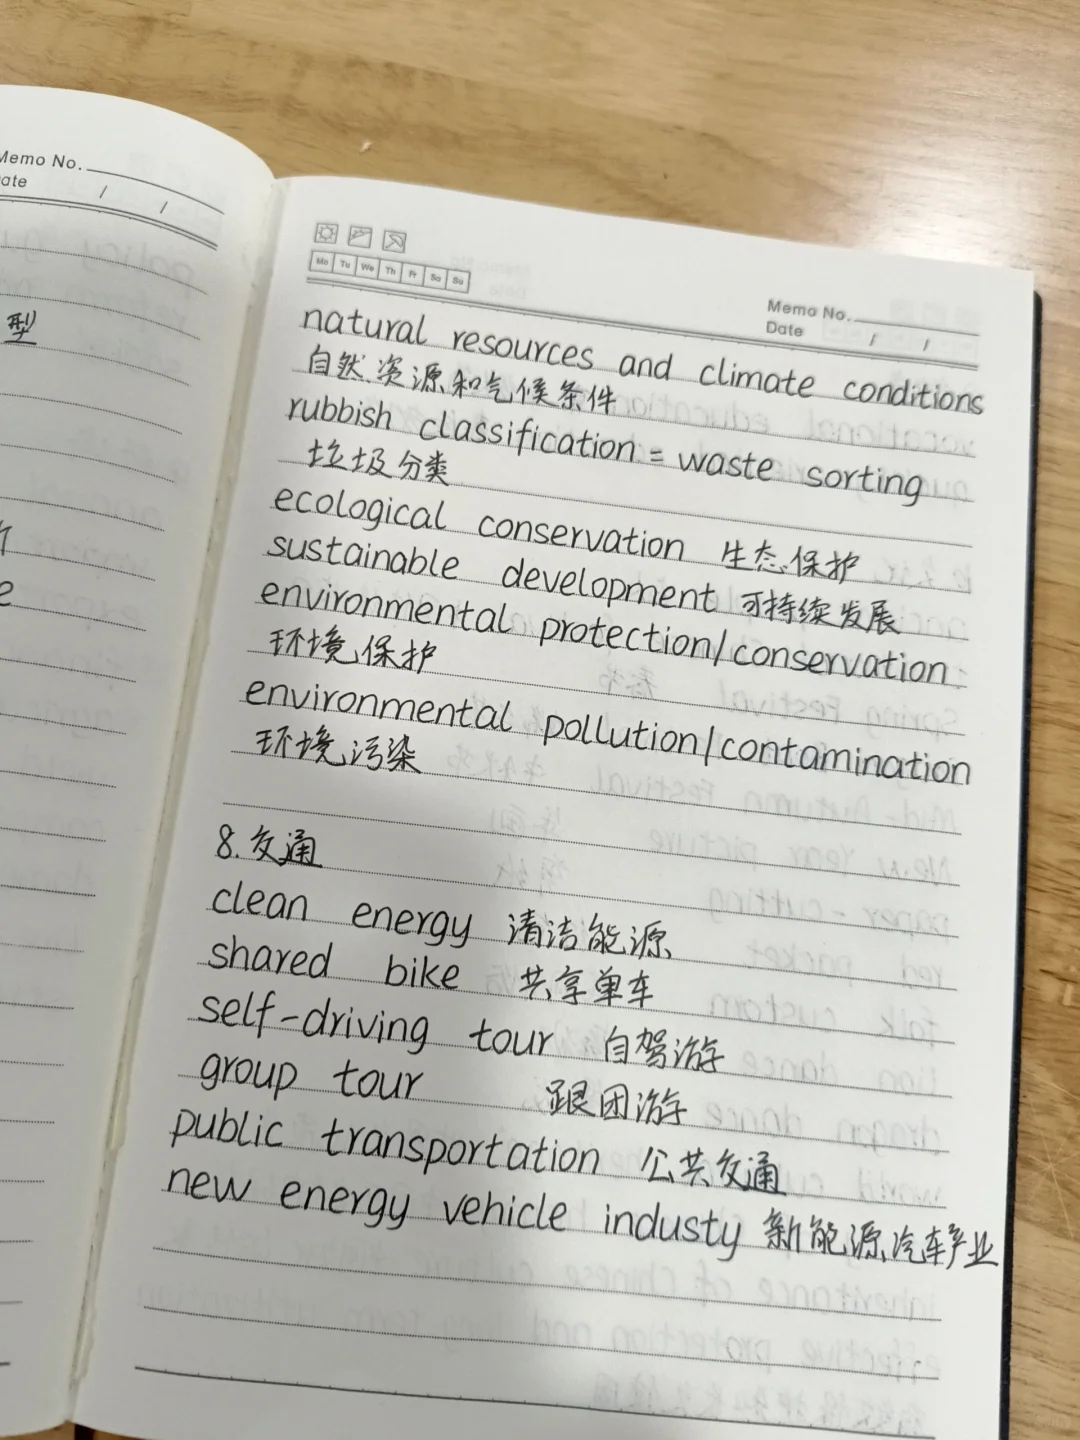 Memo No.
Date / /
型
Mo Tu We Th Fr Sa Su
Memo No.
Date / /
natural resources and climate conditions
自然资源和气候条件
rubbish classification = waste sorting
垃圾分类
ecological conservation 生态保护
sustainable development 可持续发展
environmental protection/conservation
环境保护
environmental pollution/contamination
环境污染
8.交通
clean energy 清洁能源
shared bike 共享单车
self-driving tour 自驾游
group tour 跟团游
public transportation 公共交通
new energy vehicle industy 新能源汽车产业